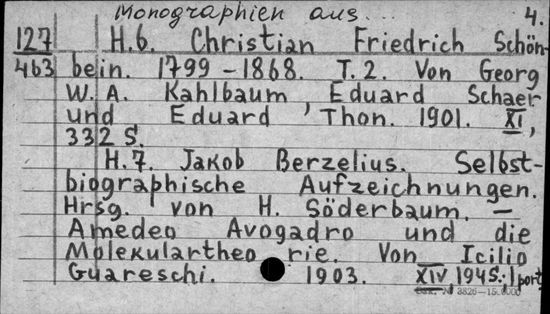 Monographien aus... 4.
127 H.6. Christian Friedrich Schön-
463 bein. 1799-1868. T.2. Von Georg
W.A. Kahlbaum, Eduard Schaer
und Eduard Thon. 1901. XI,
332 S.
H.7. Jakob Berzelius. Selbst-
biographische Aufzeichnungen.
Hrsg. von H. Söderbaum. —
Amedeo Avogadro und die
Molekulartheorie. Von Icilio
Guareschi. 1903. XIV, 194 S.; 1 port